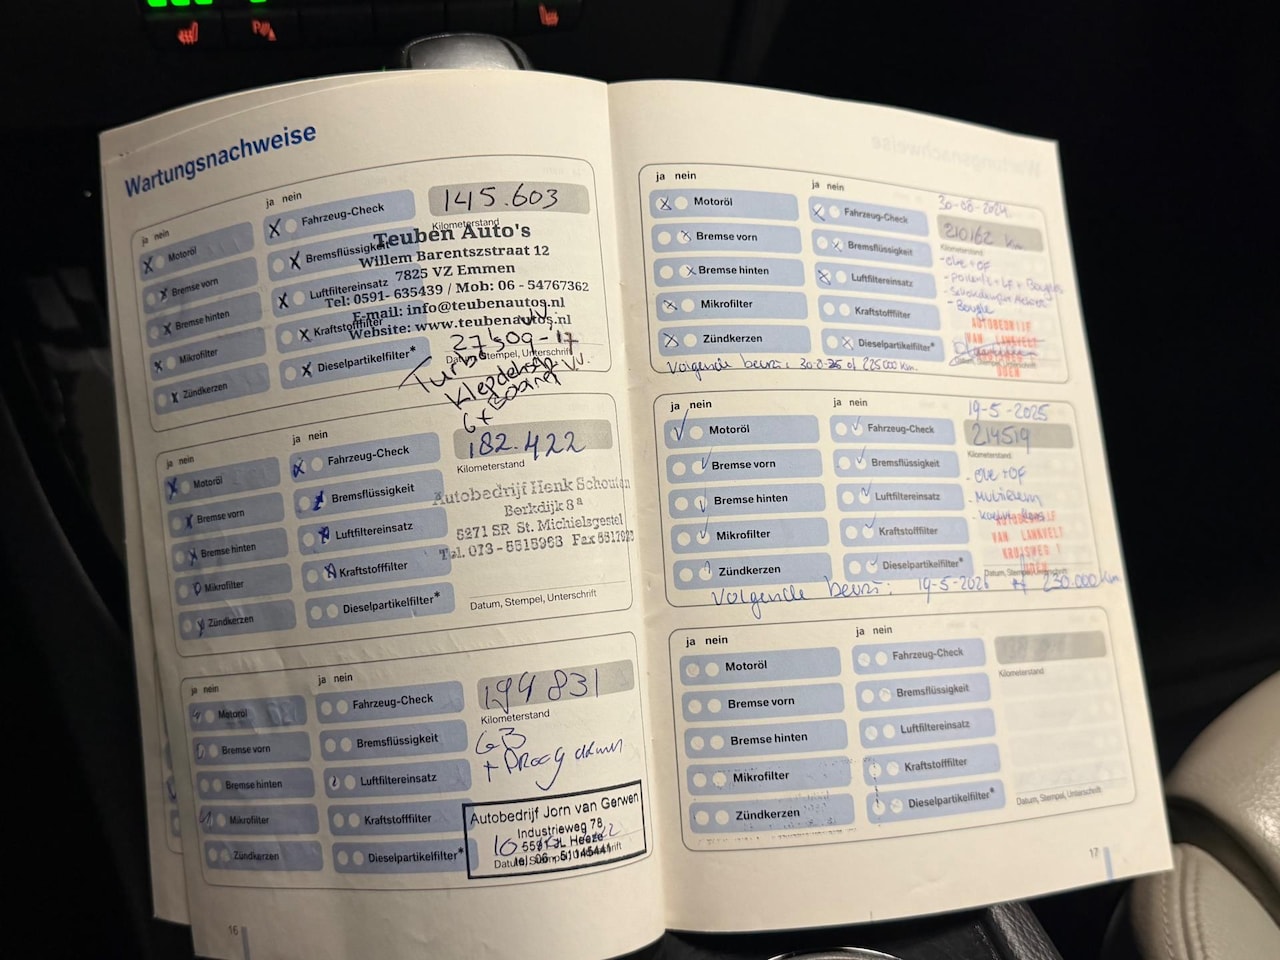 Wartungsnachweise
ja nein
Motoröl
Bremse vorn
Bremse hinten
Mikrofilter
Zündkerzen
ja nein
Fahrzeug-Check
Bremsflüssigkeit
Luftfiltereinsatz
Kraftstofffilter
Dieselpartikelfilter*
145.603
Kilometerstand
Teuben Auto's
Willem Barentszstraat 12
7825 VZ Emmen
Tel: 0591- 635439 / Mob: 06 - 54767362
E-mail: info@teubenautos.nl
Website: www.teubenautos.nl
Datum, Stempel, Unterschrift
ja nein
Motoröl
Bremse vorn
Bremse hinten
Mikrofilter
Zündkerzen
ja nein
Fahrzeug-Check
Bremsflüssigkeit
Luftfiltereinsatz
Kraftstofffilter
Dieselpartikelfilter*
182.422
Kilometerstand
Autobedrijf Henk Schouten
Berkdijk 8a
5271 SR St. Michielsgestel
Tel. 073 - 5515963 Fax
Datum, Stempel, Unterschrift
ja nein
Motoröl
Bremse vorn
Bremse hinten
Mikrofilter
Zündkerzen
ja nein
Fahrzeug-Check
Bremsflüssigkeit
Luftfiltereinsatz
Kraftstofffilter
Dieselpartikelfilter*
194 831
Kilometerstand
Autobedrijf Jorn van Gerwen
Industrieweg 78
Heeze
tel. 06 - 51145441
16
ja nein
Motoröl
Bremse vorn
Bremse hinten
Mikrofilter
Zündkerzen
ja nein
Fahrzeug-Check
Bremsflüssigkeit
Luftfiltereinsatz
Kraftstofffilter
Dieselpartikelfilter*
30-08-2024
210162 km
Kilometerstand
AUTOBEDRIJF
VAN LANKVELT
UDEN
Volgende beurt: 30-8-25 of 225.000 km.
ja nein
Motoröl
Bremse vorn
Bremse hinten
Mikrofilter
Zündkerzen
ja nein
Fahrzeug-Check
Bremsflüssigkeit
Luftfiltereinsatz
Kraftstofffilter
Dieselpartikelfilter*
19-5-2025
214519
Kilometerstand
AUTOBEDRIJF
VAN LANKVELT
KRUISWEG 1
Datum, Stempel, Unterschrift
Volgende beurt: 230.000 km
ja nein
Motoröl
Bremse vorn
Bremse hinten
Mikrofilter
Zündkerzen
ja nein
Fahrzeug-Check
Bremsflüssigkeit
Luftfiltereinsatz
Kraftstofffilter
Dieselpartikelfilter*
Kilometerstand
Datum, Stempel, Unterschrift
17